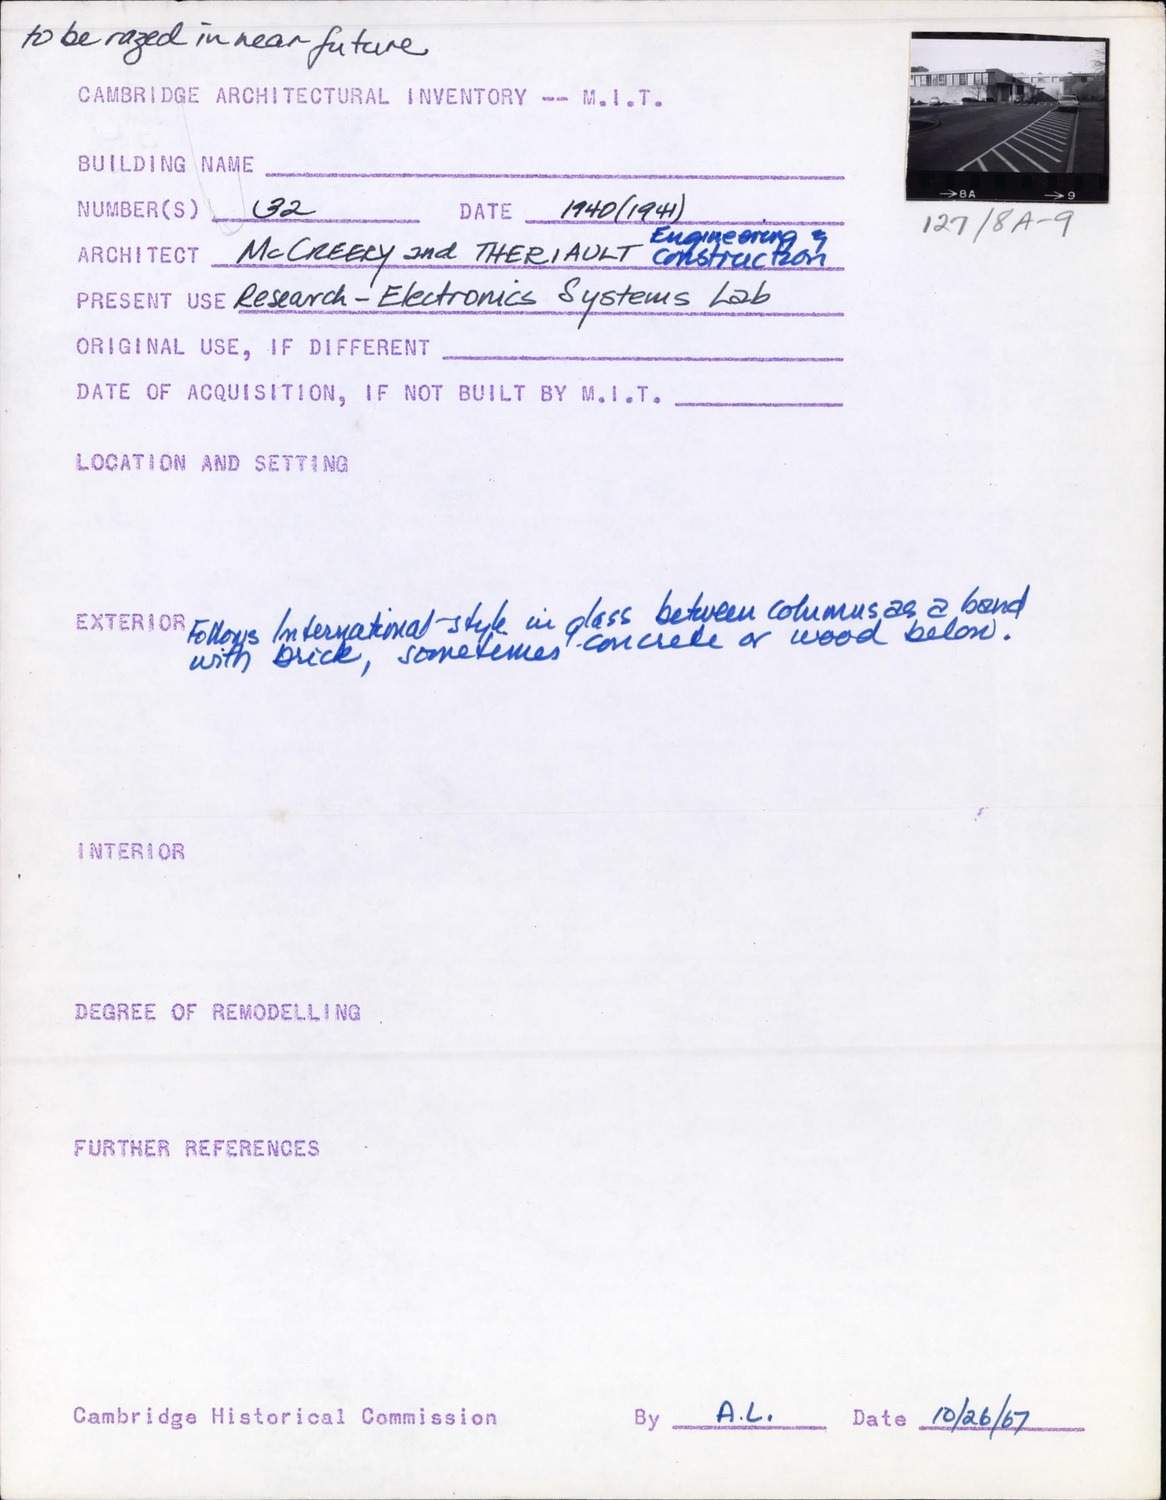 to be razed in near future
CAMBRIDGE ARCHITECTURAL INVENTORY -- M.I.T.
BUILDING NAME
NUMBER(S) 32 DATE 1940(1941)
ARCHITECT McCREERY and THERIAULT Engineering & Construction
PRESENT USE Research - Electronics Systems Lab
ORIGINAL USE, IF DIFFERENT
DATE OF ACQUISITION, IF NOT BUILT BY M.I.T.
LOCATION AND SETTING
EXTERIOR Follows International style in glass between columns as a band
with brick, sometimes concrete or wood below.
INTERIOR
DEGREE OF REMODELLING
FURTHER REFERENCES
Cambridge Historical Commission By A.L. Date 10/26/67
→8A →9
127/8A-9